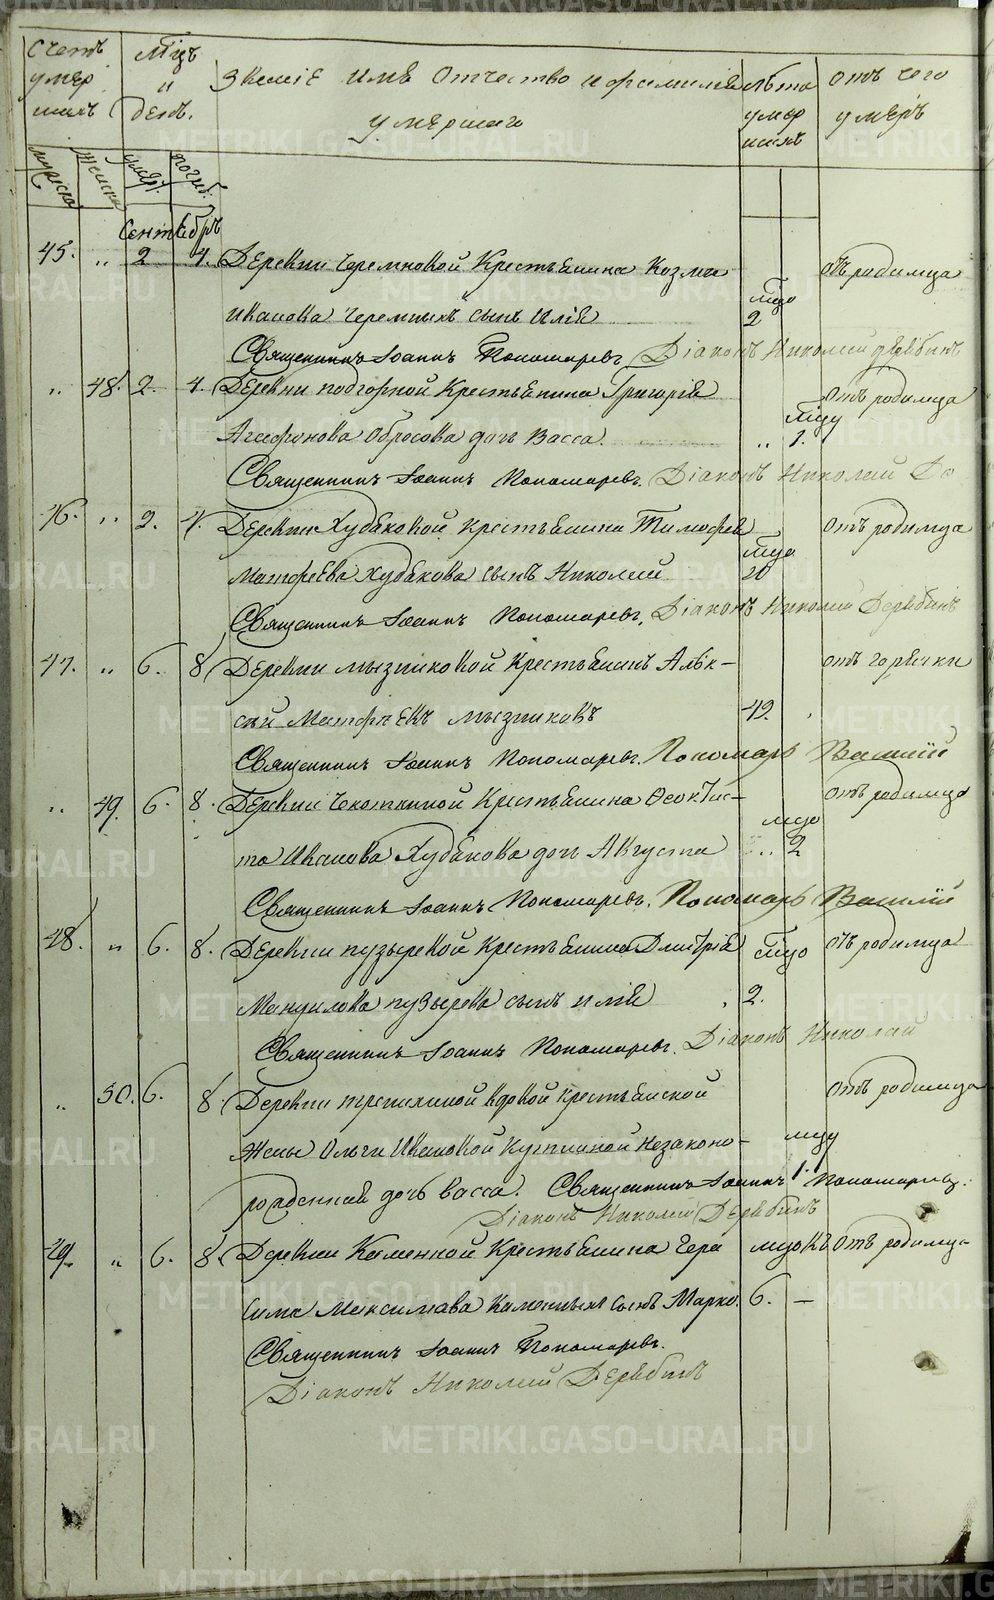 Счетъ умер шихъ
Мѣцъ и день.
Званіе имя отчество и фамилія умершаго
Лѣта умер шихъ
отъ чего умеръ
мужска женска умер. погреб.
Сентябрь
45. „ 2 4. Деревни Черемновой Крестьянина Козмы отъ родимца
Иванова Черемныхъ сынъ Илія мцо 2
Священникъ Іоаннъ Пономаревъ. Діаконъ Николай Дерябинъ
„ 48. 2. 4. Деревни подгорной Крестьянина Григорія отъ родимца
Агафонова Обросова дочь Васса. „ мцу 1.
Священникъ Іоаннъ Пономаревъ. Діаконъ Николай Де
46. „ 2. 4. Деревни Худяковой Крестьянина Тимофея отъ родимца
Матфеева Худякова сынъ Николай мцо 20
Священникъ Іоаннъ Пономаревъ. Діаконъ Николай Дерябинъ
47. „ 6. 8. Деревни мызниковой Крестьянинъ Алек- отъ горячки
сѣй Матфѣевъ мызниковъ 49.
Священникъ Іоаннъ Пономаревъ. Пономарь Василій
„ 49. 6. 8. Деревни Чекоткиной Крестьянина Ѳеоктис- отъ родимца
та Иванова Худякова дочь Августа „ мцо 2
Священникъ Іоаннъ Пономаревъ. Пономарь Василій
48. „ 6. 8. Деревни пузыревой Крестьянина Дмитрія мцо отъ родимца
Мануилова пузырева сынъ илія 2.
Священникъ Іоаннъ Пономаревъ. Діаконъ Николай
„ 50. 6. 8. Деревни вдовой крестьянской отъ родимца
жены Ольги Ивановой незаконо- мцу
рожденная дочь васса. Священникъ Іоаннъ 1. Пономаревъ.
Діаконъ Николай Дерябинъ
49. „ 6. 8. Деревни Каменной Крестьянина Гера мцовъ отъ родимца
сима Максимава Каменныхъ сынъ Марко. 6. —
Священникъ Іоаннъ Пономаревъ.
Діаконъ Николай Дерябинъ
METRIKI.GASO-URAL.RU